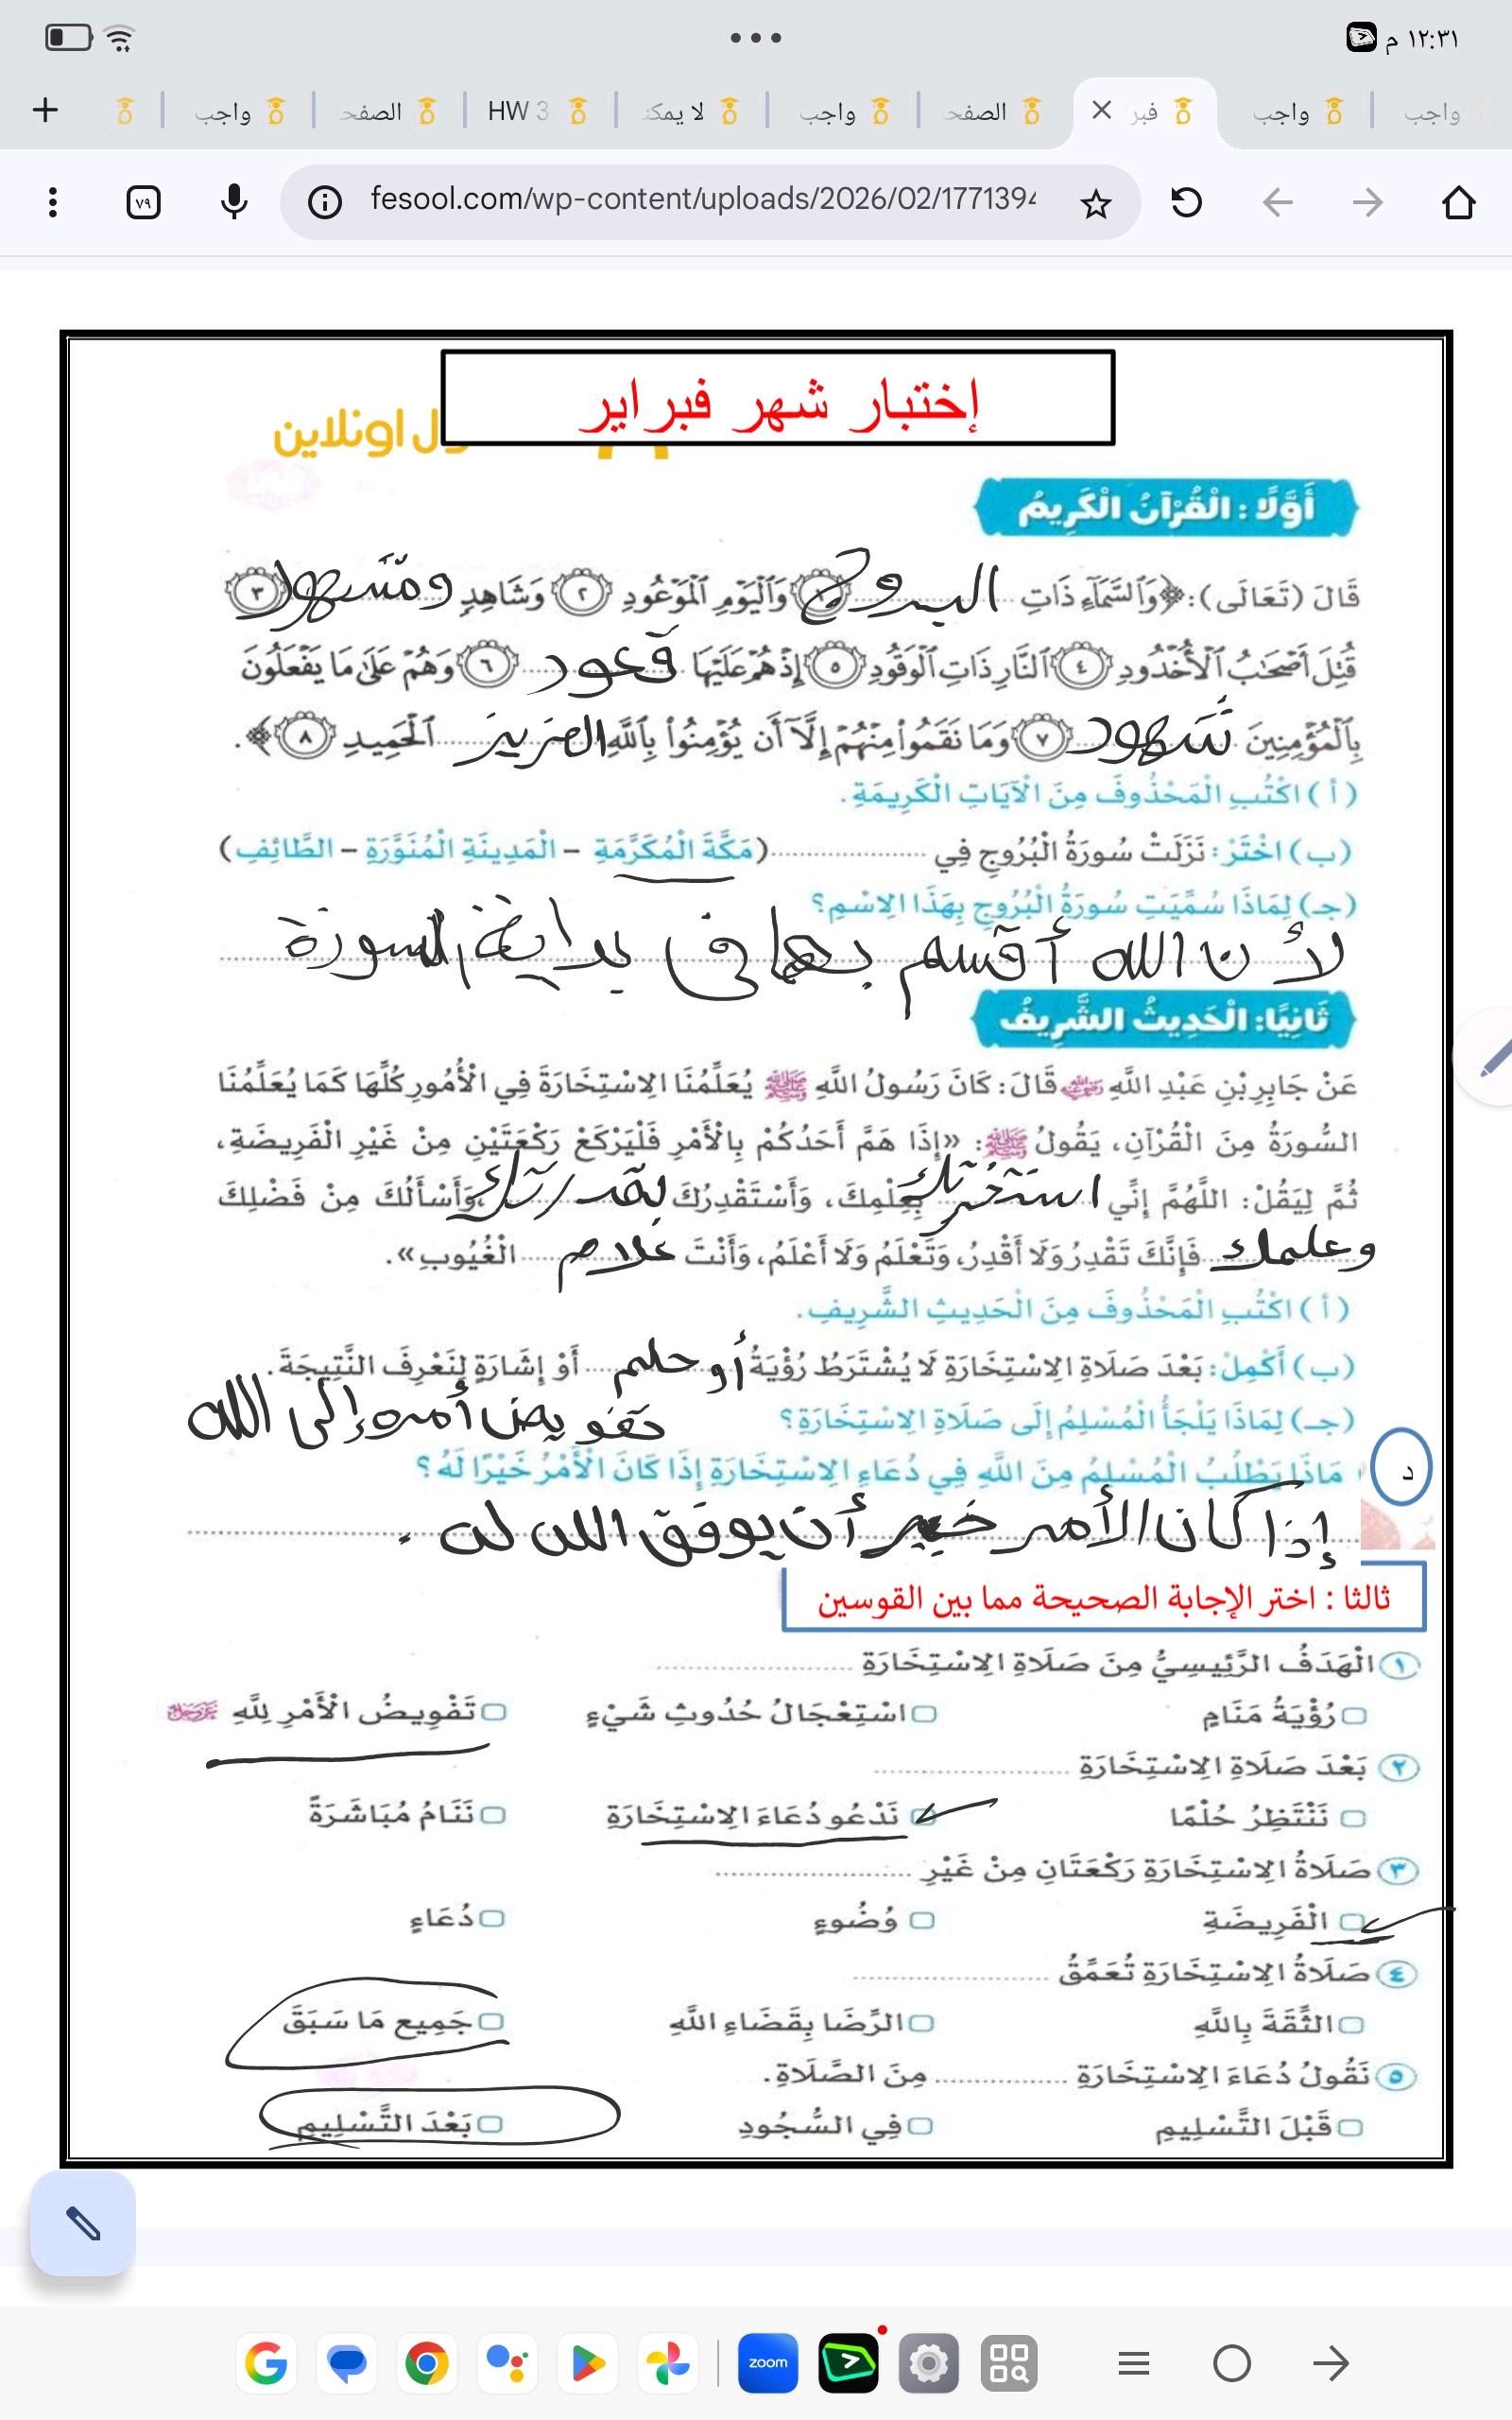 ١٢:٣١ م
واجب
واجب
فبر
الصفح
واجب
لا يمكن
HW 3
الصفح
واجب
fesool.com/wp-content/uploads/2026/02/1771394
٧٩
إختبار شهر فبراير
ول اونلاين
أَوَّلًا : الْقُرْآنُ الْكَرِيمُ
قَالَ (تَعَالَى): ﴿وَٱلسَّمَآءِ ذَاتِ البروج ١ وَٱلْيَوْمِ ٱلْمَوْعُودِ ٢ وَشَاهِدٍ ومشهود ٣
قُتِلَ أَصْحَٰبُ ٱلْأُخْدُودِ ٤ ٱلنَّارِ ذَاتِ ٱلْوَقُودِ ٥ إِذْ هُمْ عَلَيْهَا قعود ٦ وَهُمْ عَلَىٰ مَا يَفْعَلُونَ
بِٱلْمُؤْمِنِينَ شهود ٧ وَمَا نَقَمُوا۟ مِنْهُمْ إِلَّآ أَن يُؤْمِنُوا۟ بِٱللَّهِ العزيز ٱلْحَمِيدِ ٨﴾.
(أ) اكْتُبِ الْمَحْذُوفَ مِنَ الْآيَاتِ الْكَرِيمَةِ.
(ب) اخْتَرْ: نَزَلَتْ سُورَةُ الْبُرُوجِ فِي .......... (مَكَّةَ الْمُكَرَّمَةِ – الْمَدِينَةِ الْمُنَوَّرَةِ – الطَّائِفِ)
(جـ) لِمَاذَا سُمِّيَتِ سُورَةُ الْبُرُوجِ بِهَذَا الِاسْمِ؟
لأن الله أقسم بها في بداية السورة
ثَانِيًا: الْحَدِيثُ الشَّرِيفُ
عَنْ جَابِرِ بْنِ عَبْدِ اللَّهِ رضي الله عنه قَالَ: كَانَ رَسُولُ اللَّهِ ﷺ يُعَلِّمُنَا الِاسْتِخَارَةَ فِي الْأُمُورِ كُلِّهَا كَمَا يُعَلِّمُنَا
السُّورَةُ مِنَ الْقُرْآنِ، يَقُولُ ﷺ: «إِذَا هَمَّ أَحَدُكُمْ بِالْأَمْرِ فَلْيَرْكَعْ رَكْعَتَيْنِ مِنْ غَيْرِ الْفَرِيضَةِ،
ثُمَّ لِيَقُلْ: اللَّهُمَّ إِنِّي استخيرتك بِعِلْمِكَ، وَأَسْتَقْدِرُكَ بقدرتك، وَأَسْأَلُكَ مِنْ فَضْلِكَ
وعلمك فَإِنَّكَ تَقْدِرُ وَلَا أَقْدِرُ، وَتَعْلَمُ وَلَا أَعْلَمُ، وَأَنْتَ علام الْغُيُوبِ».
(أ) اكْتُبِ الْمَحْذُوفَ مِنَ الْحَدِيثِ الشَّرِيفِ.
(ب) أَكْمِلْ: بَعْدَ صَلَاةِ الِاسْتِخَارَةِ لَا يُشْتَرَطُ رُؤْيَةُ أو حلم أَوْ إِشَارَةٍ لِنَعْرِفَ النَّتِيجَةَ.
(جـ) لِمَاذَا يَلْجَأُ الْمُسْلِمُ إِلَى صَلَاةِ الِاسْتِخَارَةِ؟ تفويض أمره إلى الله
د مَاذَا يَطْلُبُ الْمُسْلِمُ مِنَ اللَّهِ فِي دُعَاءِ الِاسْتِخَارَةِ إِذَا كَانَ الْأَمْرُ خَيْرًا لَهُ؟
إذا كان الأمر خير أن يوفق الله له .
ثالثا : اختر الإجابة الصحيحة مما بين القوسين
١ الْهَدَفُ الرَّئِيسِيُّ مِنَ صَلَاةِ الِاسْتِخَارَةِ ..........
رُؤْيَةُ مَنَامٍ اسْتِعْجَالُ حُدُوثِ شَيْءٍ تَفْوِيضُ الْأَمْرِ لِلَّهِ عز وجل
٢ بَعْدَ صَلَاةِ الِاسْتِخَارَةِ ..........
نَنْتَظِرُ حُلْمًا نَدْعُو دُعَاءَ الِاسْتِخَارَةِ نَنَامُ مُبَاشَرَةً
٣ صَلَاةُ الِاسْتِخَارَةِ رَكْعَتَانِ مِنْ غَيْرِ ..........
الْفَرِيضَةِ وُضُوءٍ دُعَاءٍ
٤ صَلَاةُ الِاسْتِخَارَةِ تُعَمِّقُ ..........
الثِّقَةَ بِاللَّهِ الرِّضَا بِقَضَاءِ اللَّهِ جَمِيعِ مَا سَبَقَ
٥ نَقُولُ دُعَاءَ الِاسْتِخَارَةِ .......... مِنَ الصَّلَاةِ.
قَبْلَ التَّسْلِيمِ فِي السُّجُودِ بَعْدَ التَّسْلِيمِ
zoom